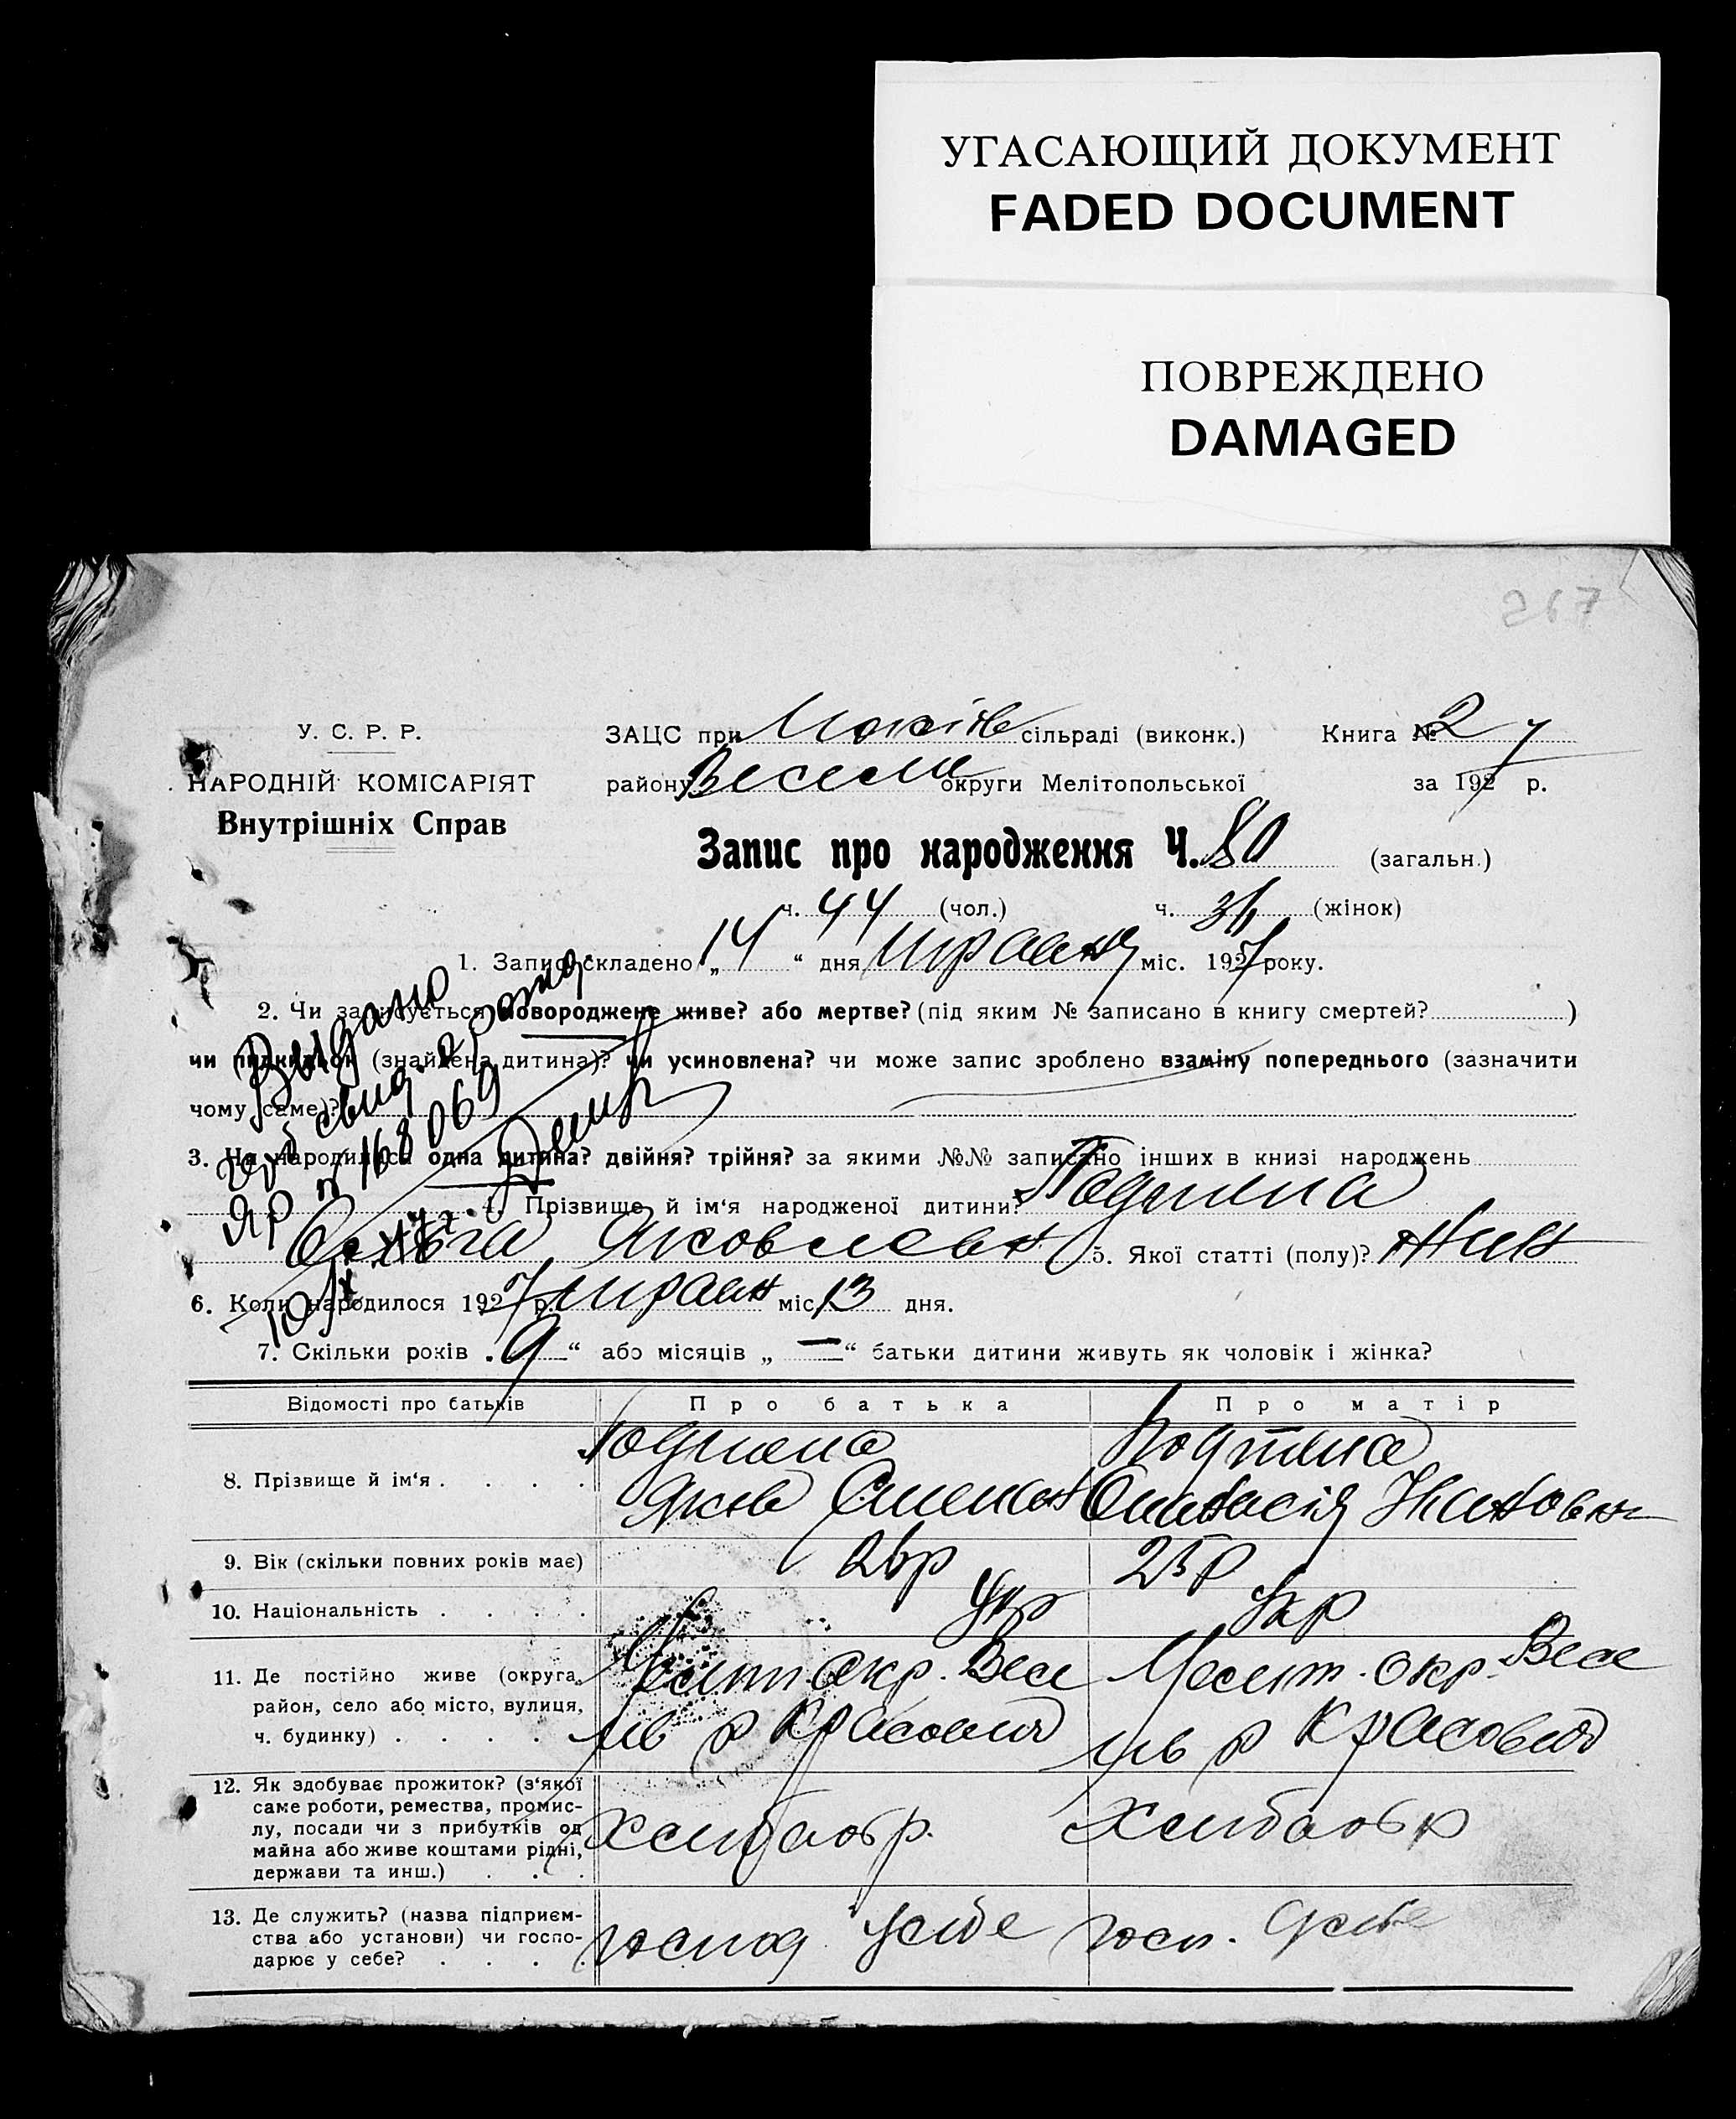 УГАСАЮЩИЙ ДОКУМЕНТ
FADED DOCUMENT
ПОВРЕЖДЕНО
DAMAGED
267
У. С. Р. Р.
НАРОДНІЙ КОМІСАРІЯТ
Внутрішніх Справ
ЗАЦС при сільраді (виконк.) Книга № 2
району Весели округи Мелітопольської за 1927 р.
Запис про народження Ч. 80 (загальн.)
ч. 44 (чол.) ч. 36 (жінок)
1. Запис складено „14“ дня травня міс. 1927 року.
2. Чи записується новороджене живе? або мертве? (під яким № записано в книгу смертей? )
чи підкидьок (знайдена дитина)? чи усиновлена? чи може запис зроблено взаміну попереднього (зазначити
чому саме)?
Выдано
свид. о рожд.
ЯР № 168069
3. Чи народилася одна дитина? двійня? трійня? за якими №№ записано інших в книзі народжень
4. Прізвище й ім'я народженої дитини?
Ольга Яковлевн 5. Якої статті (полу)? жин
6. Коли народилося 1927 р. травн міс. 13 дня.
7. Скільки років „9“ або місяців „—“ батьки дитини живуть як чоловік і жінка?
Відомості про батьків Про батька Про матір
8. Прізвище й ім'я
Яків Степан
9. Вік (скільки повних років має) 26р 25р
10. Національність Укр Укр
11. Де постійно живе (округа, район, село або місто, вулиця, ч. будинку)
Мелит. окр. Весе Мелит. окр. Весе
лів р лів р
12. Як здобуває прожиток? (з'якої саме роботи, ремества, промислу, посади чи з прибутків од майна або живе коштами рідні, держави та инш.)
Хлібороб Хлібороб
13. Де служить? (назва підприємства або установи) чи господарює у себе?
господ у себе госп. у себе